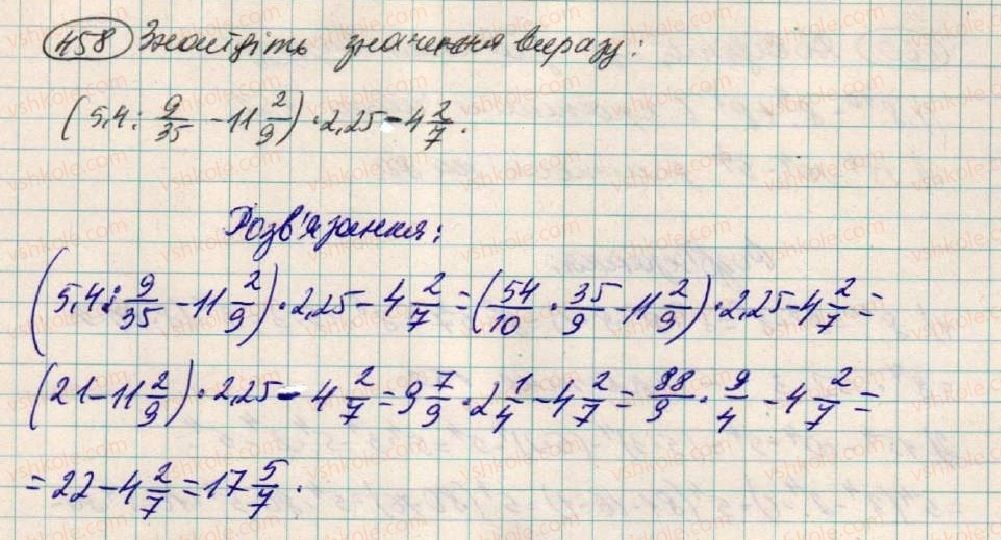 458 Знайдіть значення виразу:
(5,4 : 9/35 - 11 2/9) · 2,25 - 4 2/7.
Розв'язання:
(5,4 : 9/35 - 11 2/9) · 2,25 - 4 2/7 = (54/10 · 35/9 - 11 2/9) · 2,25 - 4 2/7 =
(21 - 11 2/9) · 2,25 - 4 2/7 = 9 7/9 · 2 1/4 - 4 2/7 = 88/9 · 9/4 - 4 2/7 =
= 22 - 4 2/7 = 17 5/7.
vshkole.com